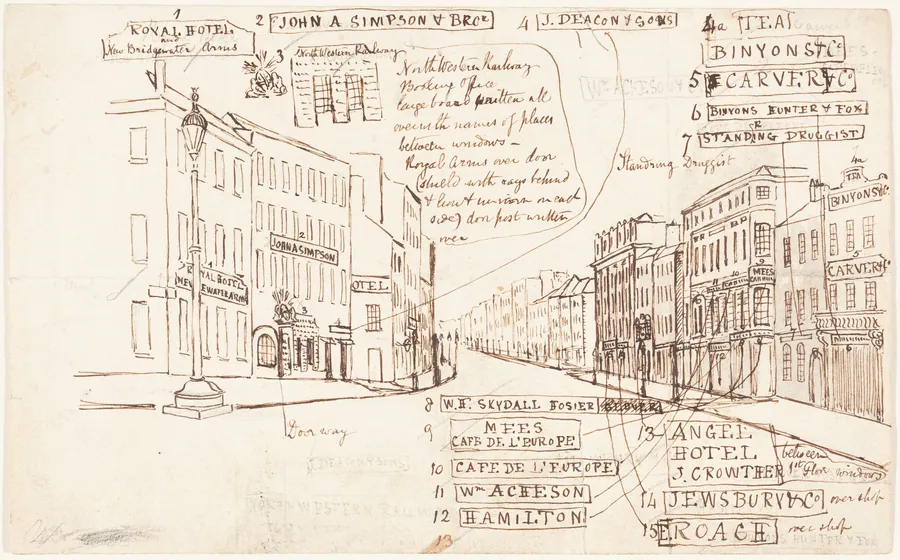 1
ROYAL HOTEL
and
New Bridgewater Arms
2 JOHN A SIMPSON & BROR
3
North Western Railway
North Western Railway
Booking office
large board written all
over with names of places
between windows –
Royal Arms over door
(shield with rays behind
& lion & unicorn on each
side) door post written
over
4 J. DEACON & SONS
4a TEA
BINYONS & Co
5 CARVER & Co
6 BINYONS HUNTER & FOX
7 STANDING DRUGGIST
R
Standring Druggist
Wm ACHESON
2
JOHN A SIMPSON
ROYAL HOTEL
NEW EWATER ARMS
3
4
OTEL
4a
TEA
BINYONS & Co
5
CARVER & Co
6
9
MEES
10
12
Door way
8 W. H. SKYDALL HOSIER GLOVER
9 MEES
CAFE DE L'EUROPE
10 CAFE DE L'EUROPE
11 Wm ACHESON
12 HAMILTON
13
13 ANGEL
HOTEL
J. CROWTHER
between
1st Floor windows
14 JEWSBURY & Co over shop
15 E. ROACH over shop
J. DEACON & SONS